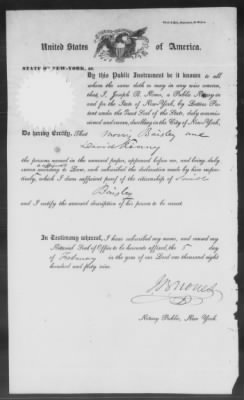 United States of America.
STATE OF NEW-YORK, ss.
By this Public Instrument be it known to all
whom the same doth or may in any wise concern,
that I, Joseph B. Nones, a Public Notary in
and for the State of New-York, by Letters Patent
under the Great Seal of the State, duly commissioned
and sworn, dwelling in the City of New-York,
Do hereby Certify, That Morris Baisley and
David Kenny
the persons named in the annexed paper, appeared before me, and being duly
sworn according to Law, each subscribed the declaration made by him respectively,
which I deem sufficient proof of the citizenship of
Baisley
and I certify the annexed description of his person to be exact
In Testimony whereof, I have subscribed my name, and caused my
Notarial Seal of Office to be hereunto affixed, the 5 day
of February in the year of our Lord one thousand eight
hundred and forty nine
JB Nones
Notary Public, New York.